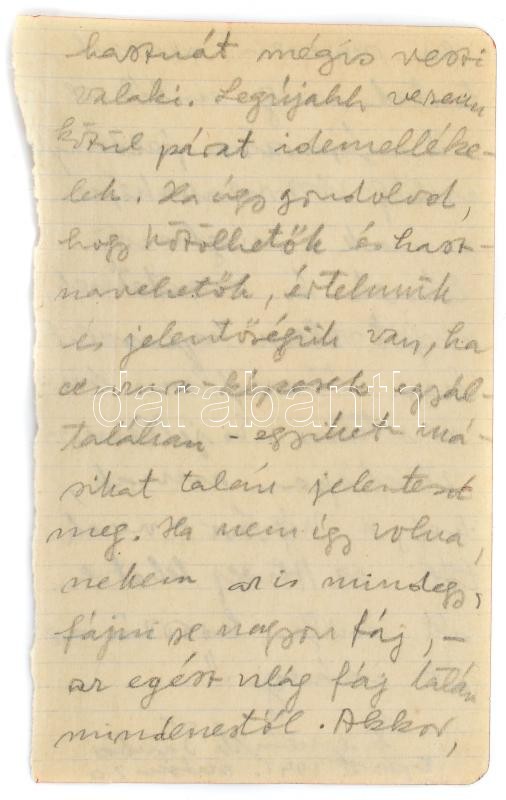 hasznát mégis veszi
valaki. Legújabb verseim
közül párat idemelléke-
lek. Ha úgy gondolod,
hogy közölhetők és hasz-
navehetők, értelmük
és jelentőségük van, ha
cenzura-képesek egyál-
darabanth
talában - egyiket má-
sikat talán jelentesd
meg. Ha nem így volna,
nekem az is mindegy,
fájni se nagyon fáj, -
az egész világ fáj talán
mindenestől. Akkor,